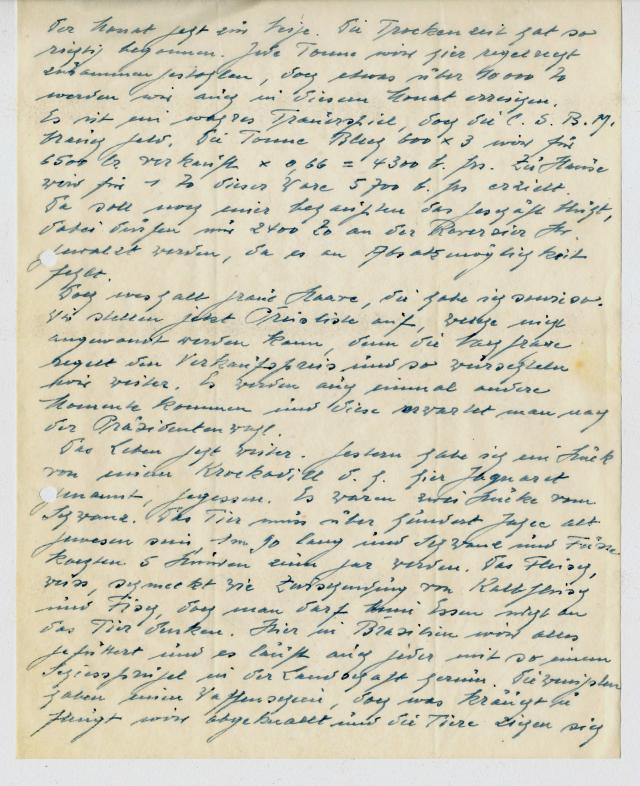 der Monat geht zur Neige. Die Trockenzeit hat so
richtig begonnen. Jede Tonne wird hier regelrecht
zusammen gestohlen, doch etwas über 10000 To
werden wir auch in diesem Monat erreichen.
Es ist ein wahres Trauerspiel, doch die C. S. B. M.
braucht Geld. Die Tonne Blech 600 x 3 wird für
6500 Cr verkauft x 0,66 = 4300 b. frs. Zu Hause
wird für 1 To dieser Ware 5700 b. frs erzielt.
Da soll noch einer behaupten das Geschäft blüht,
dabei dürfen nur 2400 To an der Reversier Str.
gewalzt werden, da es an Absatzmöglichkeit
fehlt.
Doch weshalb graue Haare, die habe ich sowieso.
Wir stellen jetzt Preisliste auf, welche nicht
angewandt werden kann, denn die Nachfrage
regelt den Verkaufspreis und so wurschteln
wir weiter. Es werden auch einmal andere
Momente kommen und diese erwartet man nach
der Präsidentenwahl.
Das Leben geht weiter. Gestern habe ich ein Stück
von einem Krockodill d. h. hier Jaquaret
genannt, gegessen. Es waren zwei Stücke vom
Schwanz. Das Tier muss über hundert Jahre alt
gewesen sein 1m 90 lang und Schwanz und Füsse
kochten 5 Stunden zum gar werden. Das Fleisch,
weiss, schmeckt wie Zwischending von Kalbfleisch
und Fisch, doch man darf beim Essen nicht an
das Tier denken. Hier in Brasilien wird alles
gefuttert und es läuft auch jeder mit so einem
Schiessprügel in der Landschaft herum. Die wenigsten
haben einen Waffenschein, doch was kräucht und
fleugt wird abgeknallt und die Tiere ziehen sich